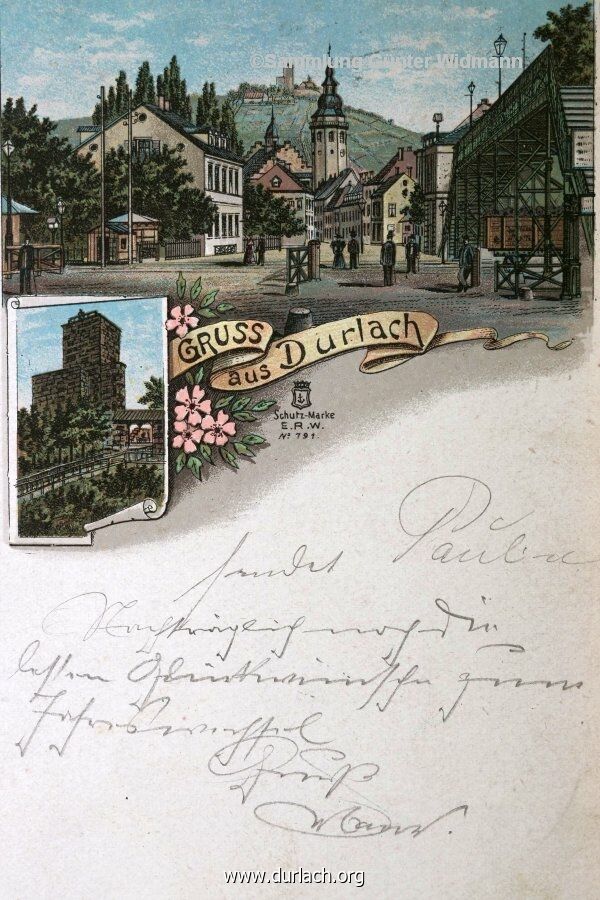 ©Sammlung Günter Widmann
GRUSS
aus Durlach
Schutz-Marke
E.R.W.
No 791.
sendet Paulin
Nachträglich noch die
besten Glückwünsche zum
Jahreswechsel
Gruß
www.durlach.org